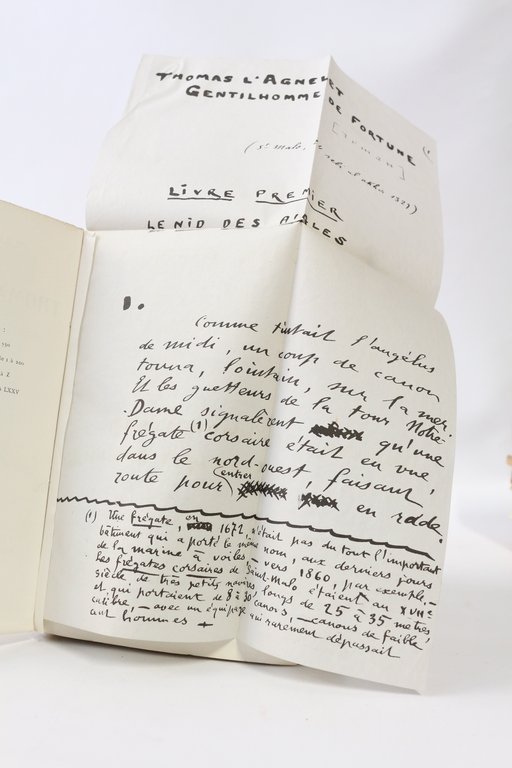 THOMAS L'AGNELET
GENTILHOMME DE FORTUNE
[roman]
LIVRE PREMIER
LE NID DES AIGLES
1.
Comme tintait l'angélus
de midi, un coup de canon
tonna, lointain, sur la mer.
Et les guetteurs de la tour Notre-
Dame signalèrent qu'une
frégate (1) corsaire était en vue,
dans le nord-ouest, faisant
route pour entrer en rade.
(1) Une frégate, en 1672, n'était pas du tout l'important
bâtiment qui a porté le même nom, aux derniers jours
de la marine à voiles — vers 1860, par exemple. —
Les frégates corsaires de Saint-Malo étaient au XVIIe
siècle, de très petits navires longs de 25 à 35 mètres
et que portaient de 8 à 30 canons, — canons de faible
calibre, — avec un équipage qui rarement dépassait
hommes
:
150
1 à 200
à Z
à LXXV